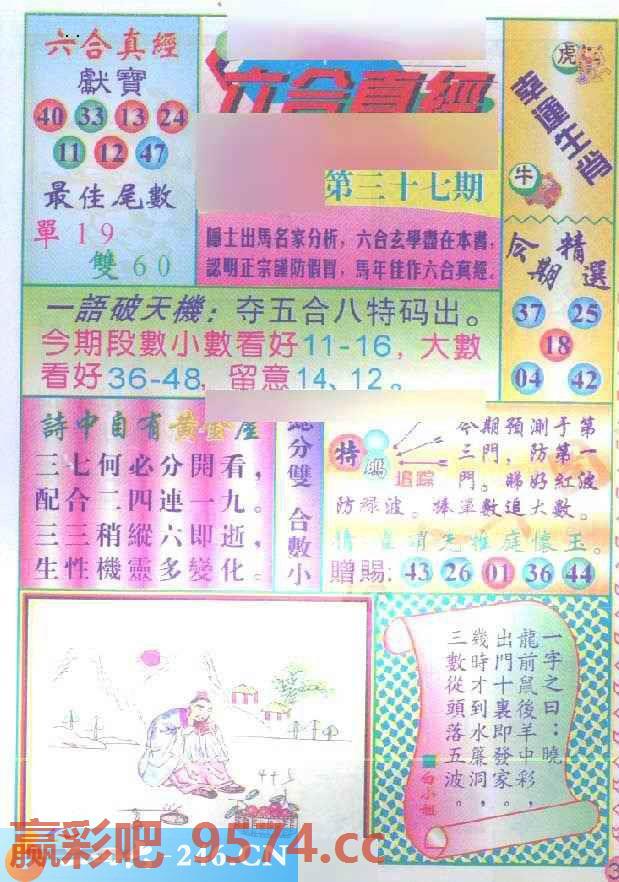 六合真經
獻寶
40 33 13 24
11 12 47
最佳尾數
單19
雙60
六合真經
第三十七期
隱士出馬名家分析，六合玄學盡在本書，
認明正宗謹防假冒，馬年佳作六合真經。
虎
幸運生肖
牛
今期精選
37 25
18
04 42
一語破天機：夺五合八特码出。
今期段數小數看好11-16，大數
看好36-48，留意14、12。
詩中自有黃金屋
三七何必分開看，
配合二四連一九。
三三稍縱六即逝，
生性機靈多變化。
總分雙 合數小
特碼
追踪
今期預測于第
三門，防第一
門。睇好紅波
防綠波。捧單數追大數。
贈賜：43 26 01 36 44
一字之曰：曉
龍前鼠後羊中彩，
出門十裏即發家。
幾時才到水簾洞，
三數從頭落五波。
白小姐
4+5
赢彩吧 9574.cc
246.CN
3